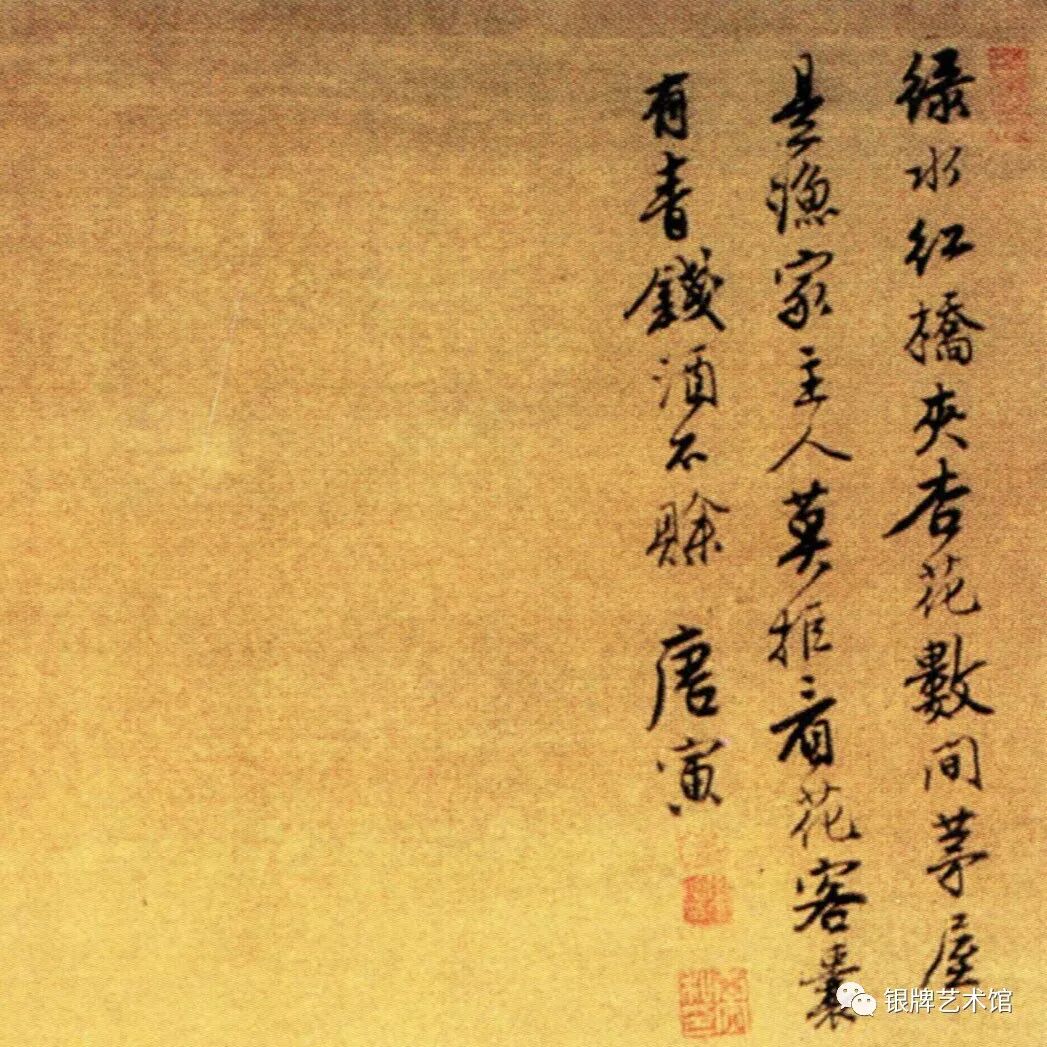 绿水红橋夾杏花數间茅屋
是漁家主人莫拒看花客囊
有青錢酒不賒 唐寅
银牌艺术馆